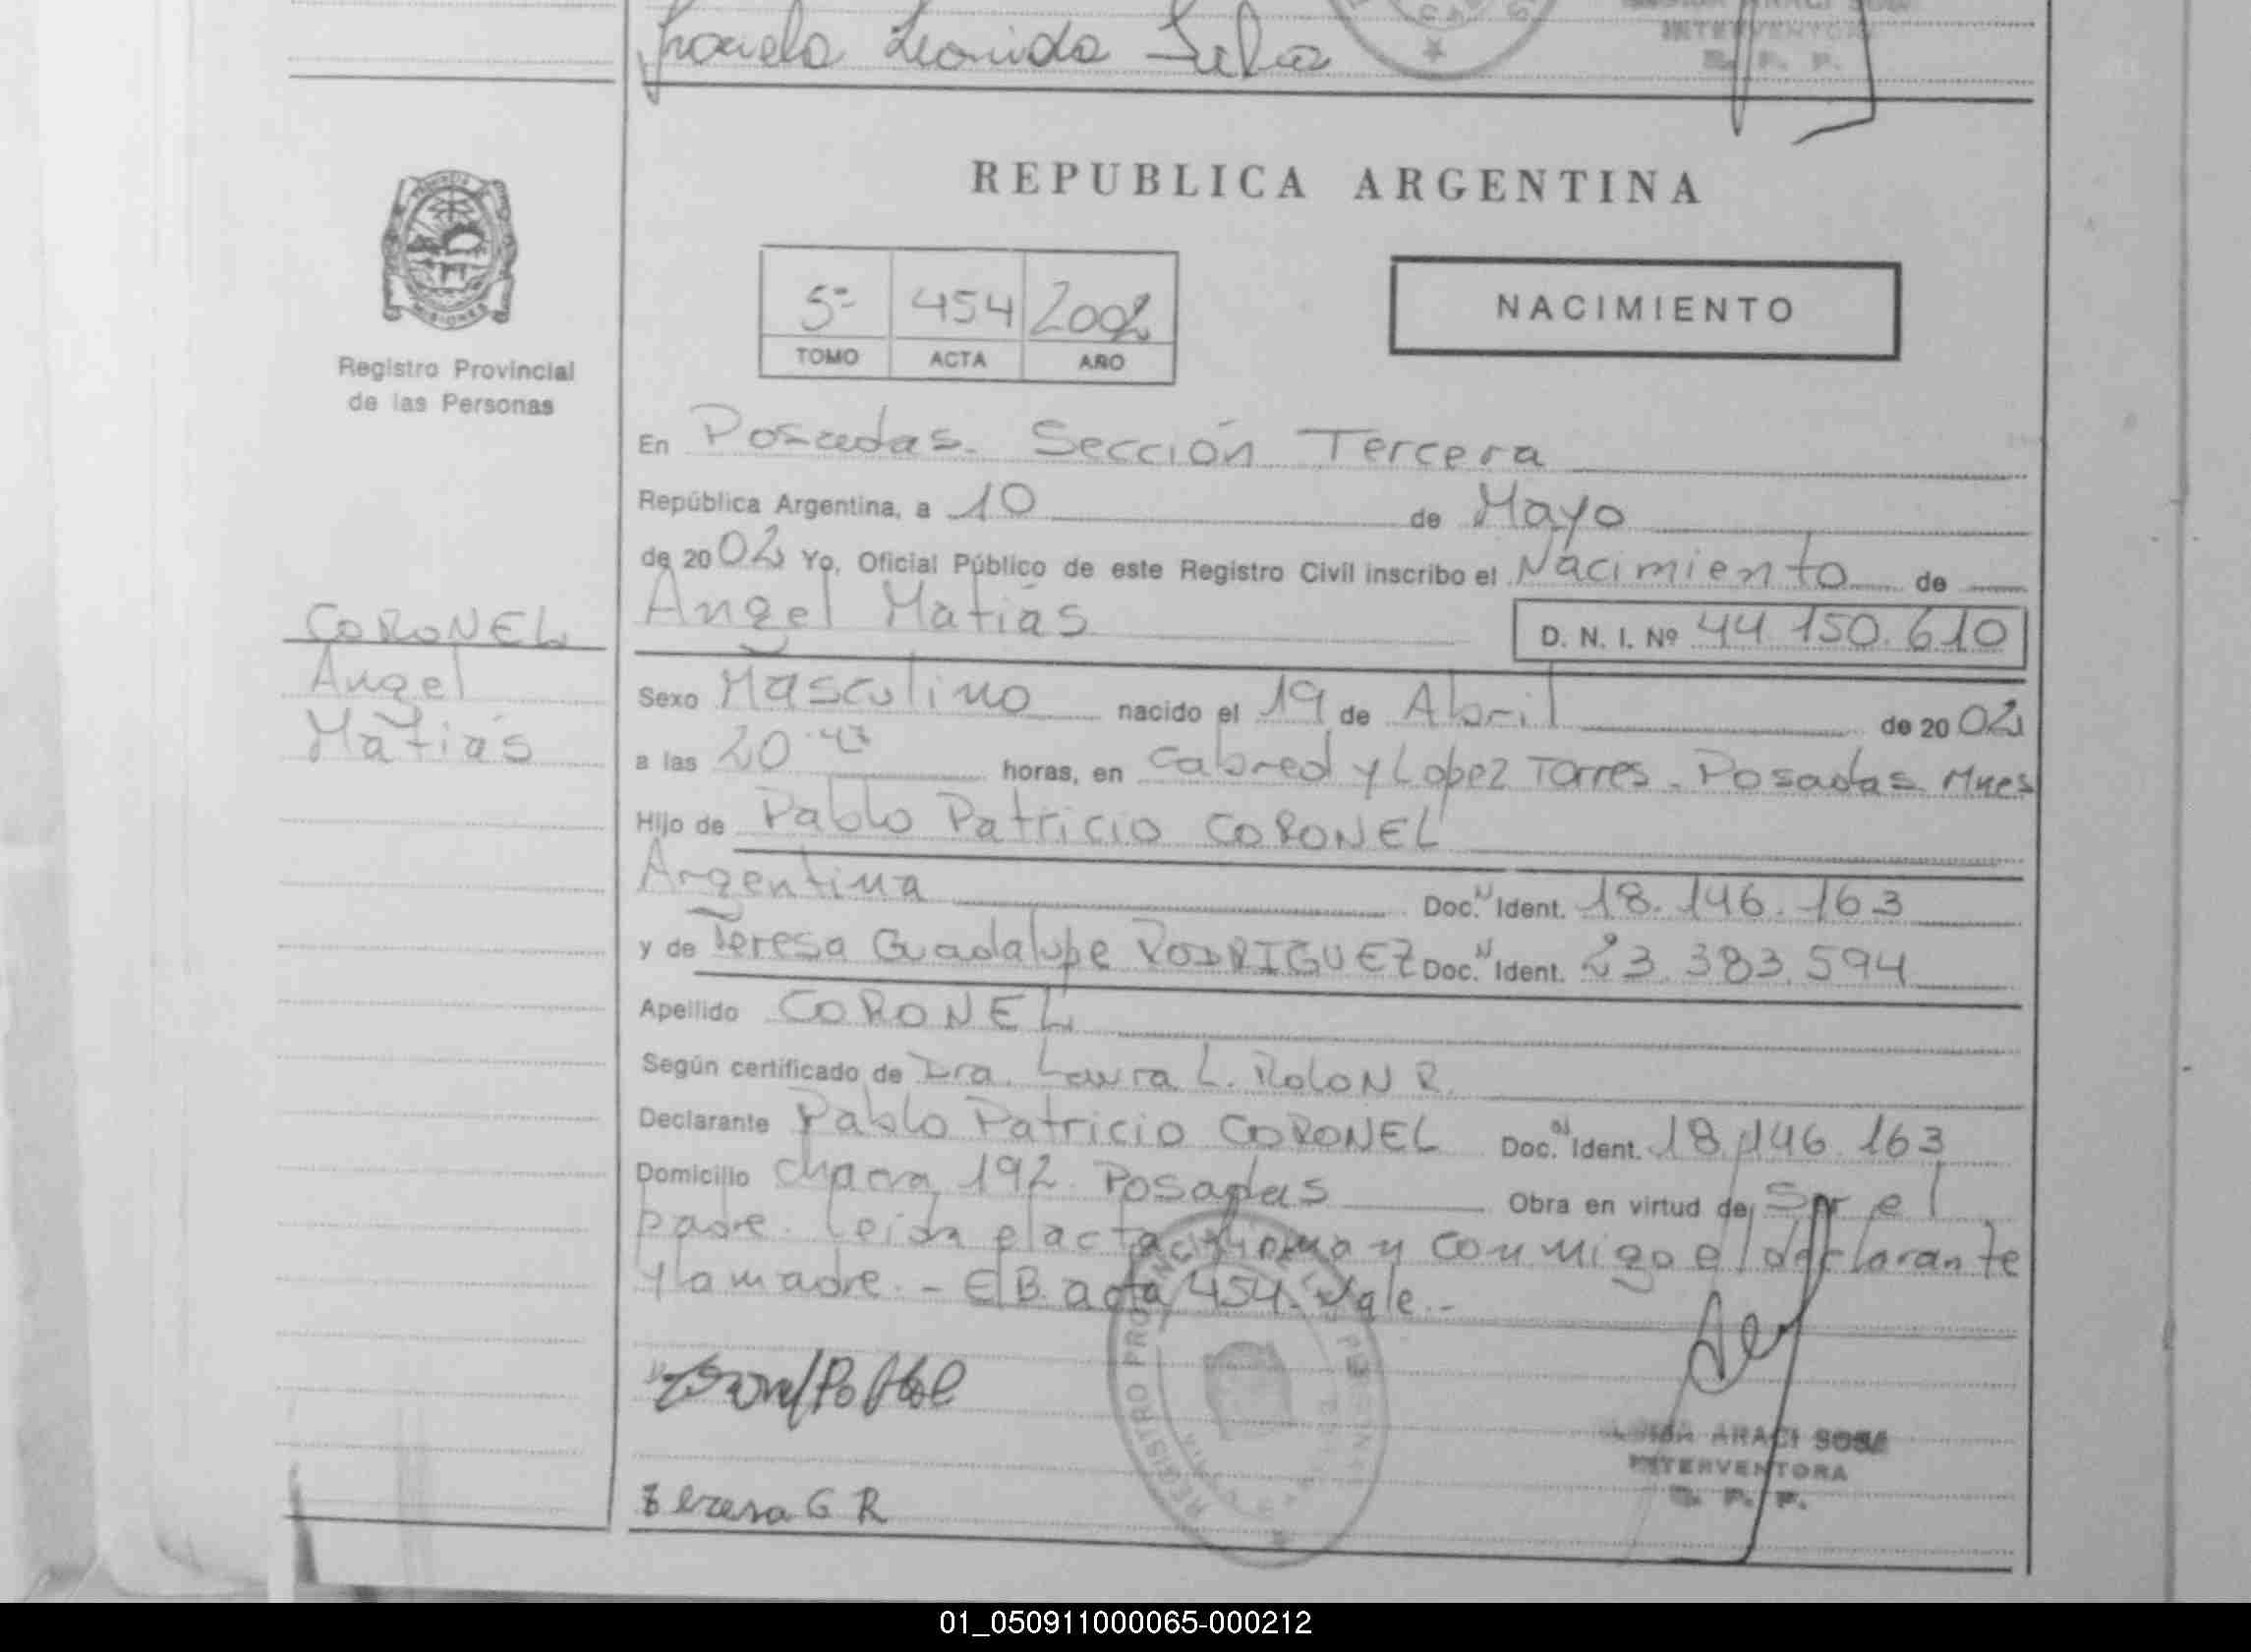 Leonida
INTERVENTORA
REPUBLICA ARGENTINA
MISIONES
Registro Provincial
de las Personas
5º 454 2002
TOMO ACTA AÑO
NACIMIENTO
En Posadas. Sección Tercera
República Argentina, a 10 de Mayo
de 2002 Yo, Oficial Público de este Registro Civil inscribo el Nacimiento de
Angel Matías D. N. I. Nº 44.150.610
CORONEL
Angel
Matías
Sexo Masculino nacido el 19 de Abril de 2002
a las 20.47 horas, en Cabred y Lopez Torres - Posadas Mnes
Hijo de Pablo Patricio CORONEL
Argentina Doc. Ident. 18.146.163
y de Teresa Guadalupe RODRIGUEZ Doc. Ident. 23.383.594
Apellido CORONEL
Según certificado de Dra. Laura L. Rolon R.
Declarante Pablo Patricio CORONEL Doc. Ident. 18.146.163
Domicilio chacra 192. Posadas Obra en virtud de Ser el
padre. Leida el acta la firman conmigo el declarante
y la madre. - E/B. acta 454. Vale. -
REGISTRO PROVINCIAL DE LAS PERSONAS
ARACI SOSA
INTERVENTORA
R. P. P.
Teresa G R
01_050911000065-000212